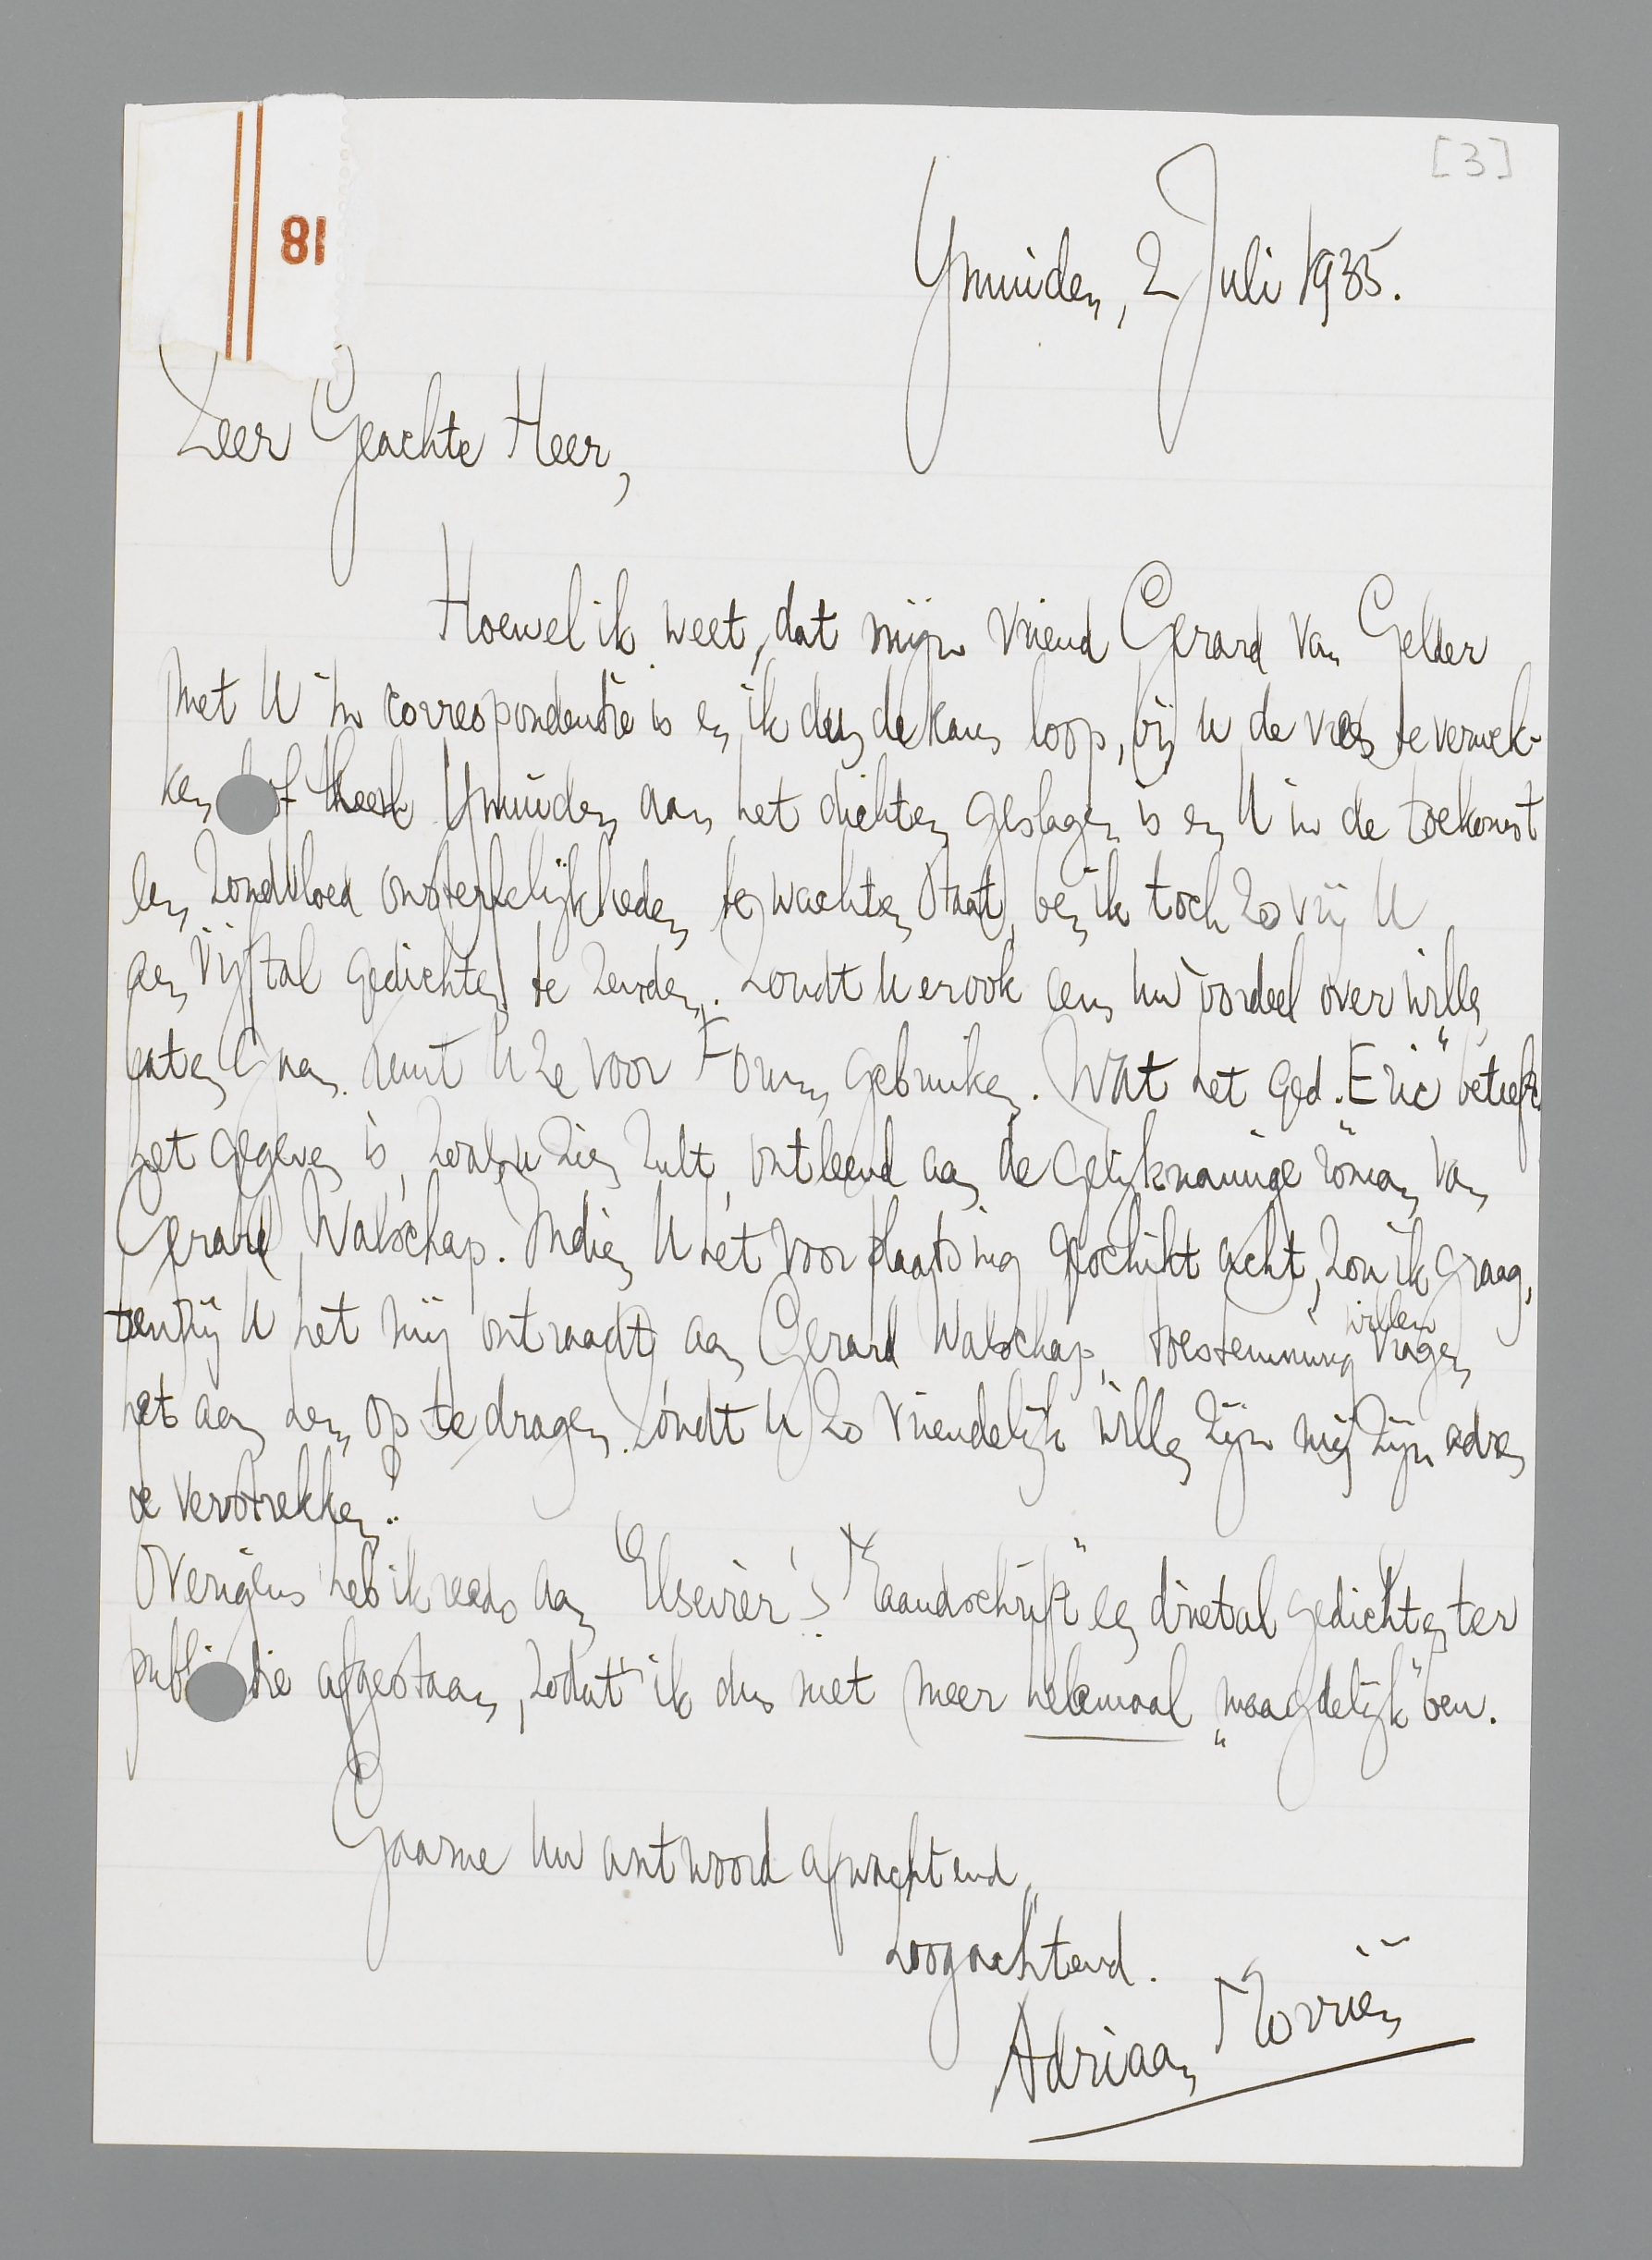 [3]
81
Ymuiden, 2 Juli 1935.
Zeer Geachte Heer,
Hoewel ik weet, dat mijn vriend Gerard van Gelder
met U in correspondentie is en ik dus de kans loop, bij U de vrees te verwek-
ken of heel Ymuiden aan het dichten geslagen is en U in de toekomst
een zondvloed onsterfelijkheden te wachten staat, ben ik toch zo vrij U
een vijftal gedichten te zenden. Zoudt U er ook eens Uw oordeel over willen
U ze voor Forum gebruiken. Wat het ged. "Eric" betreft
het gegeven is, zoals U zien zult, ontleend aan de gelijknamige roman van
Gerard Walschap. Indien U het voor plaatsing geschikt acht, zou ik graag,
tenzij U het mij ontraadt aan Gerard Walschap, toestemming willen vragen
het aan hem op te dragen. Zoudt U zo vriendelijk willen zijn mij zijn adres
te verstrekken?
Overigens heb ik reeds aan "Elsevier's Maandschrift" een drietal gedichten ter
publi tie afgestaan, zodat ik dus niet meer helemaal „maagdelijk" ben.
Gaarne Uw antwoord afwachtend,
hoogachtend.
Adriaan Morriën